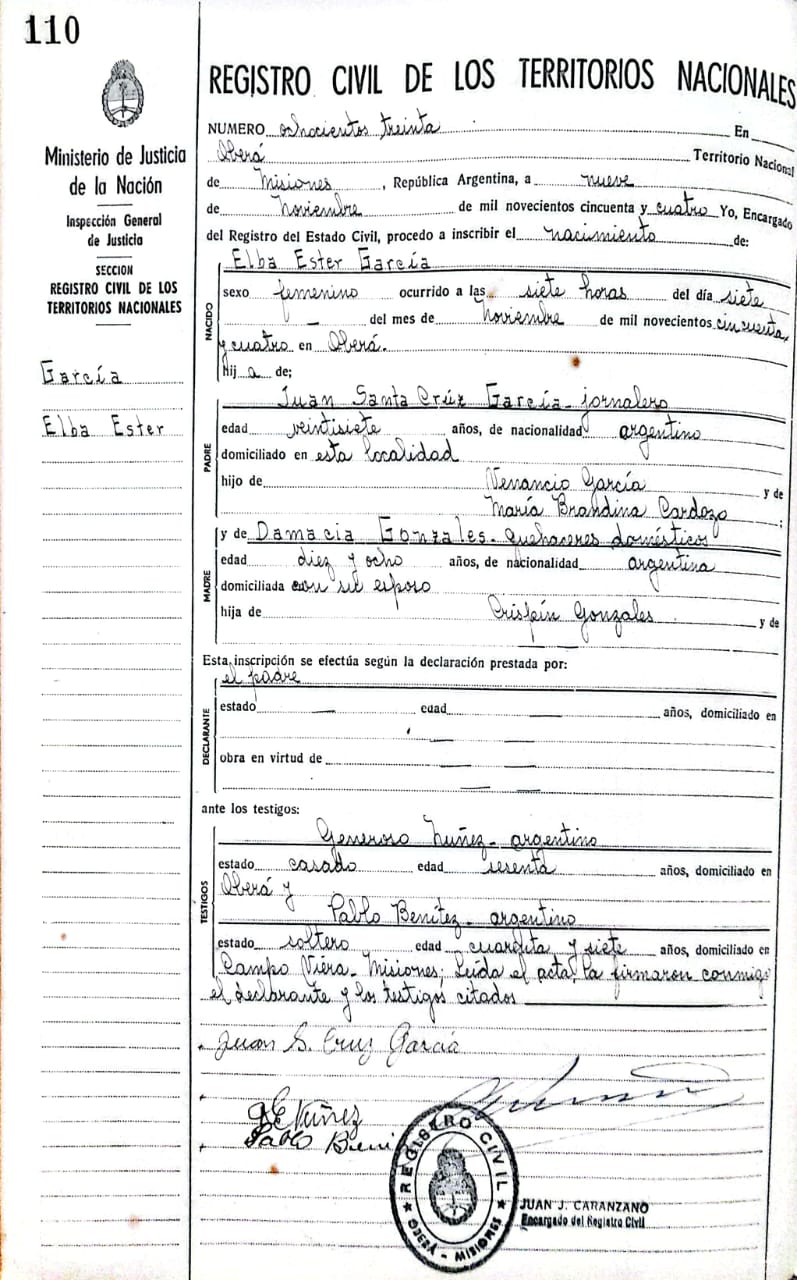 110
Ministerio de Justicia
de la Nación
Inspección General
de Justicia
SECCION
REGISTRO CIVIL DE LOS
TERRITORIOS NACIONALES
García
Elba Ester
REGISTRO CIVIL DE LOS TERRITORIOS NACIONALES
NUMERO ochocientos treinta En
Oberá Territorio Nacional
de Misiones, República Argentina, a nueve
de Noviembre de mil novecientos cincuenta y cuatro Yo, Encargado
del Registro del Estado Civil, procedo a inscribir el nacimiento de:
NACIDO
Elba Ester García
sexo femenino ocurrido a las siete horas del día siete
— del mes de Noviembre de mil novecientos cincuenta
y cuatro en Oberá.
hij a de;
PADRE
Juan Santa Crúz García - jornalero
edad veintisiete años, de nacionalidad argentino
domiciliado en esta localidad
hijo de Venancio García y de
María Brandina Cardozo ;
MADRE
y de Damacia Gonzales - quehaceres domésticos
edad diez y ocho años, de nacionalidad argentina
domiciliada con su esposo
hija de Crispín Gonzales y de
—
Esta inscripción se efectúa según la declaración prestada por:
DECLARANTE
el padre
estado — edad — años, domiciliado en
— —
obra en virtud de — —
— —
ante los testigos:
TESTIGOS
Generoso Nuñez - argentino
estado casado edad sesenta años, domiciliado en
Oberá y
Pablo Benítez - argentino
estado soltero edad cuarenta y siete años, domiciliado en
Campo Viera - Misiones; Leída el acta, la firmaron conmigo
el declarante y los testigos citados
Juan S. Cruz García
G E Núñez
Pablo
REGISTRO CIVIL
OBERÁ - MISIONES
JUAN J. CARANZANO
Encargado del Registro Civil